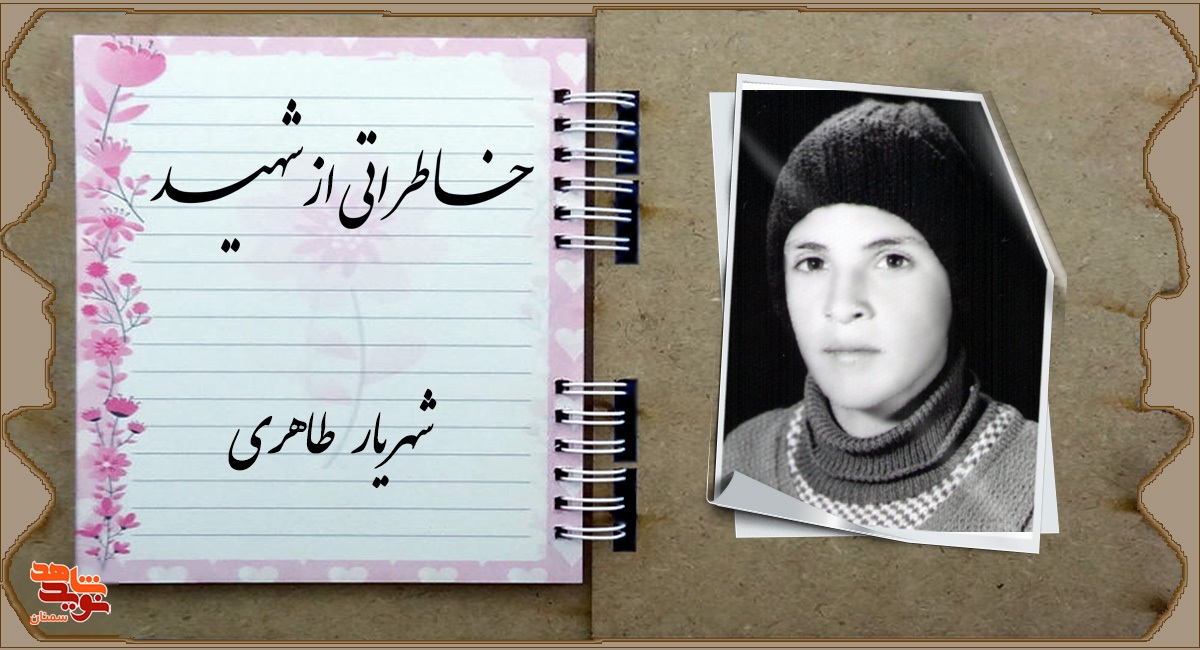 خاطراتی از شهید
شهریار طاهری
نوید شاهد
سمنان